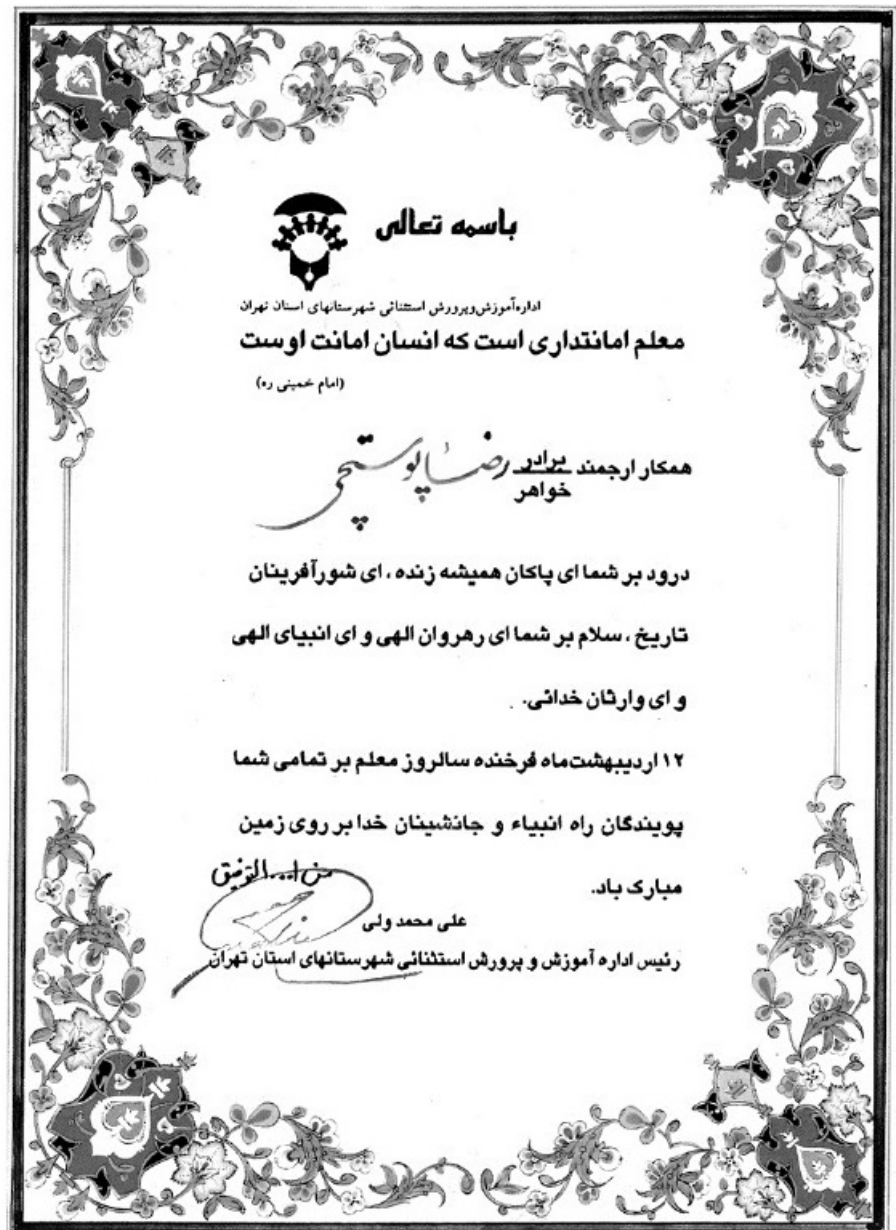 باسمه تعالی
اداره‌آموزش‌وپرورش استثنائی شهرستانهای استان تهران
معلم امانتداری است که انسان امانت اوست
(امام خمینی ره)
همکار ارجمند برادر رضا پوستچی
خواهر
درود بر شما ای پاکان همیشه زنده ، ای شورآفرینان
تاریخ ، سلام بر شما ای رهروان الهی و ای انبیای الهی
و ای وارثان خدائی.
۱۲ اردیبهشت‌ماه فرخنده سالروز معلم بر تمامی شما
پویندگان راه انبیاء و جانشینان خدا بر روی زمین
مبارک باد.
من ا... التوفیق
علی محمد ولی
رئیس اداره آموزش و پرورش استثنائی شهرستانهای استان تهران